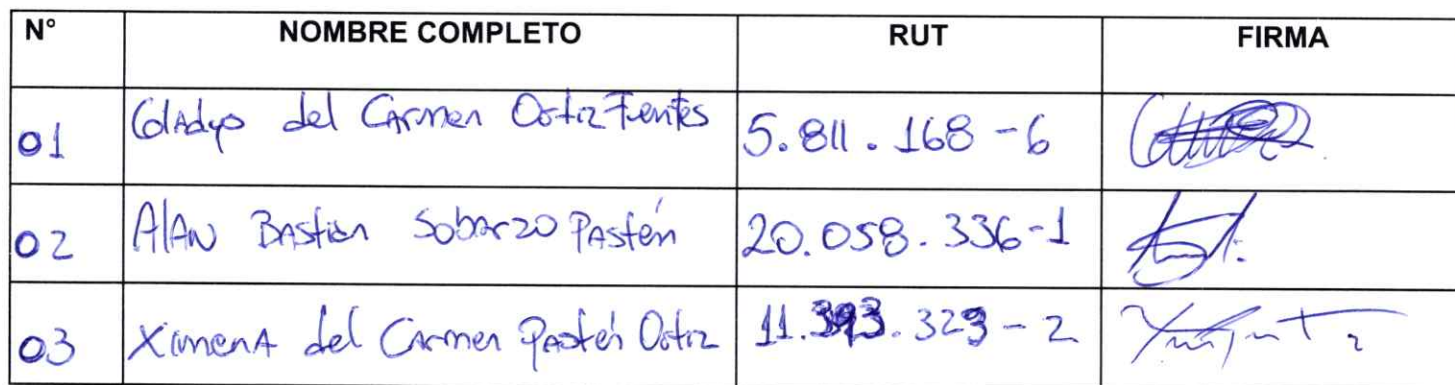 N° NOMBRE COMPLETO RUT FIRMA
01 Gladys del Carmen Ortiz Fuentes 5.811.168-6
02 Alan Bastian Sobarzo Pastén 20.058.336-1
03 Ximena del Carmen Pastén Ortiz 11.393.323-2